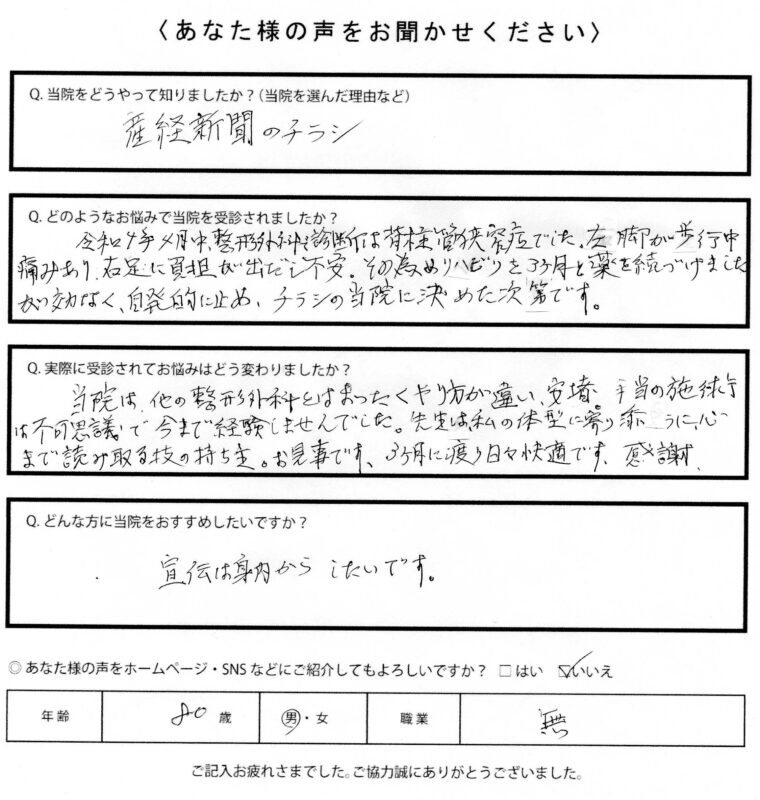 〈あなた様の声をお聞かせください〉
Q. 当院をどうやって知りましたか？（当院を選んだ理由など）
産経新聞のチラシ
Q. どのようなお悩みで当院を受診されましたか？
令和4年4月中、整形外科で診断は脊椎管狭窄症でした。左脚が歩行中
痛みあり、右足に負担が出だし不安。その為めリハビリを3ヶ月と薬を続づけました
が効なく、自発的に止め、チラシの当院に決めた次第です。
Q. 実際に受診されてお悩みはどう変わりましたか？
当院は、他の整形外科とはまったくやり方が違い、安堵。手当の施術
は不可思議で今まで経験しませんでした。先生は私の体型に寄り添うに、心
まで読み取る技の持ち主。お見事です、3ヶ月に渡り日々快適です、感謝、
Q. どんな方に当院をおすすめしたいですか？
宣伝は身内からしたいです。
◎ あなた様の声をホームページ・SNS などにご紹介してもよろしいですか？ □ はい ☑ いいえ
年齢 80 歳 男・女 職業 無
ご記入お疲れさまでした。ご協力誠にありがとうございました。